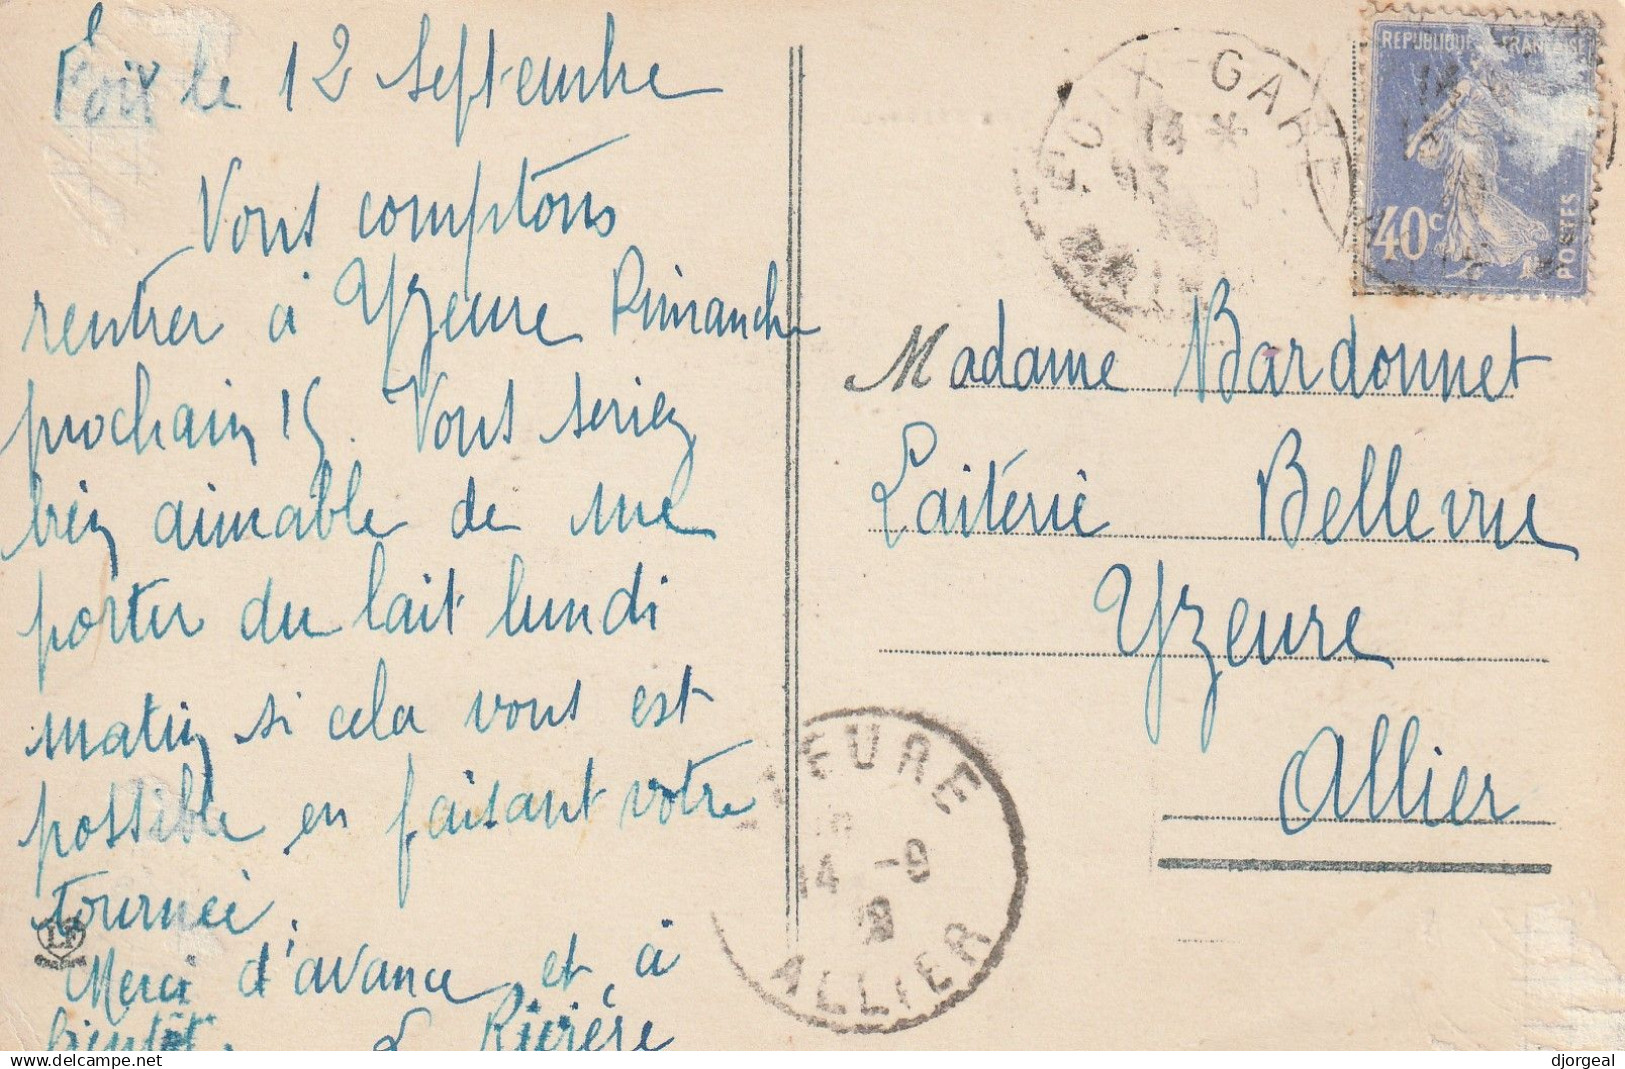 Foix le 12 Septembre
Vous comptons
rentrer à Yzeure Dimanche
prochain 15. Vous seriez
bien aimable de me
porter du lait lundi
matin si cela vous est
possible en faisant votre
tournée.
Merci d'avance et à
bientôt. L Rivière
LF
FOIX-GARE
14 *
13 -9
REPUBLIQUE FRANÇAISE
40c
POSTES
Madame Bardonnet
Laiterie Bellevue
Yzeure
Allier
YZEURE
14 -9
ALLIER
delcampe.net
djorgeal